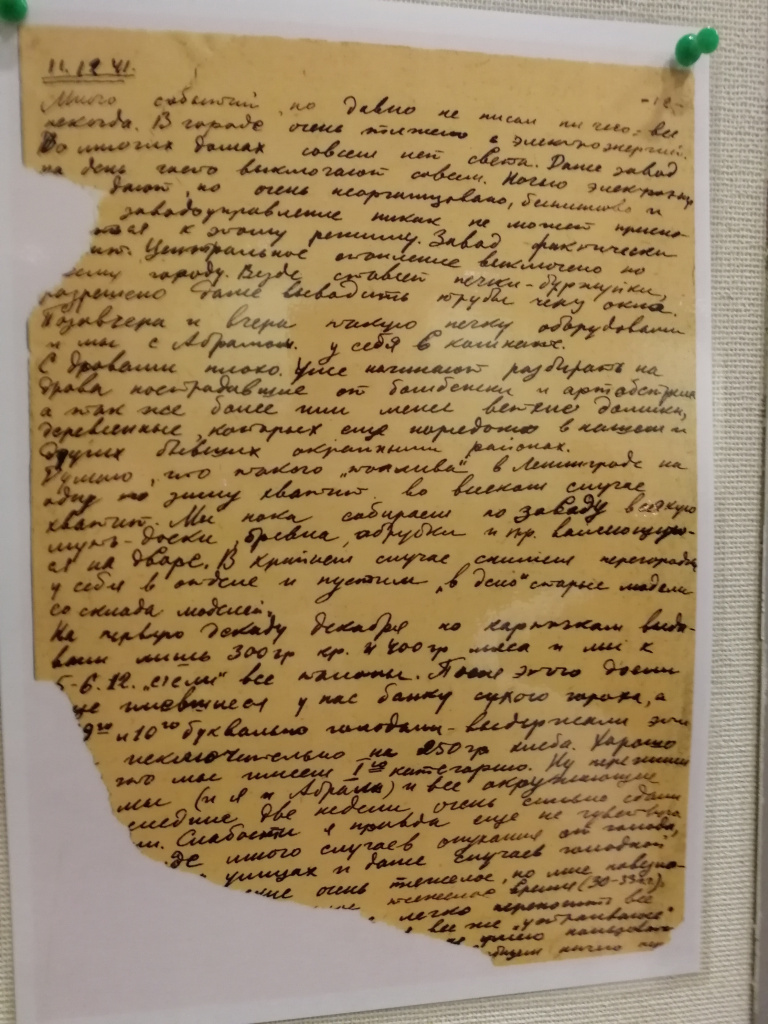 11.12.41.
-12-
Много событий, но давно не писал ничего: все
некогда. В городе очень тяжело с электроэнергией.
Во многих домах совсем нет света. Даже завод
на день часто выключают совсем. Ночью
дают, но очень неорганизовано, и
заводоуправление никак не может приспо-
к этому режиму. Завод фактически
Центральное отопление выключено по
всему городу. Везде ставят печки-буржуйки,
разрешено даже выводить трубы через окна.
Позавчера и вчера такую печку оборудовали
и мы с Абрамом у себя в комнате.
С дровами плохо. Уже начинают разбирать на
дрова пострадавшие от бомбежки и артобстрела
а так же более или менее ветхие домики,
деревянные, которых еще порядочно в нашем и
других бывших окраинными районах.
Думаю, что такого „топлива" в Ленинграде на
одну то зиму хватит во всяком случае
хватит. Мы пока собираем по заводу всякую
муть - доски, бревна, обрубки и пр. валяющую-
ся на дворе. В крайнем случае снимем перегородки
у себя в отделе и пустим „в дело" старые модели
со склада моделей.
На первую декаду декабря по карточкам выда-
вали лишь 300 гр кр. и 400 гр мяса и мы к
5-6.12. „съели" все талоны. После этого доели
еще имевшиеся у нас банку сухого гороха, а
9го и 10го буквально голодали - выдержали эти
исключительно на 250 гр хлеба. Хорошо
что мы имеем I категорию. Ну
мы (и я и Абрам) и все окружающие
последние две недели очень сильно сдали
Слабости я правда еще не чувствую
много случаев опухания от голода,
улицах и даже случаев голодной
очень тяжелое, но мне
время (30-33 гг).
легко переносить все
все же „устраиваюсь"
умею пользоваться
ничего не